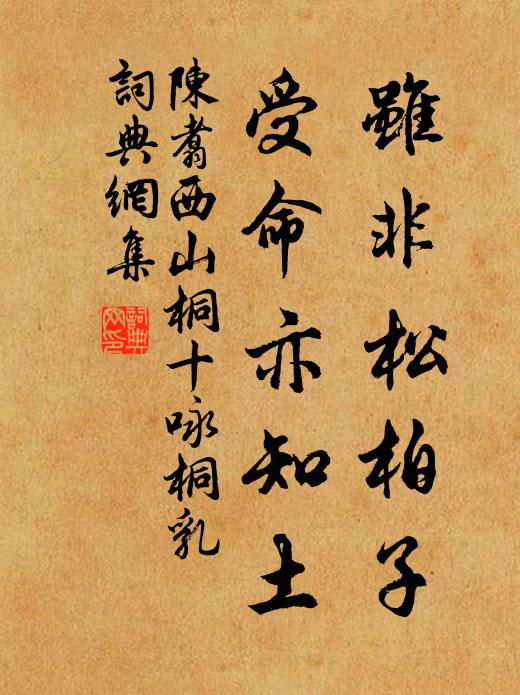 雖非松柏子
受命亦知土
陳翥西山桐十咏桐乳
詞典網集
詞典
网印